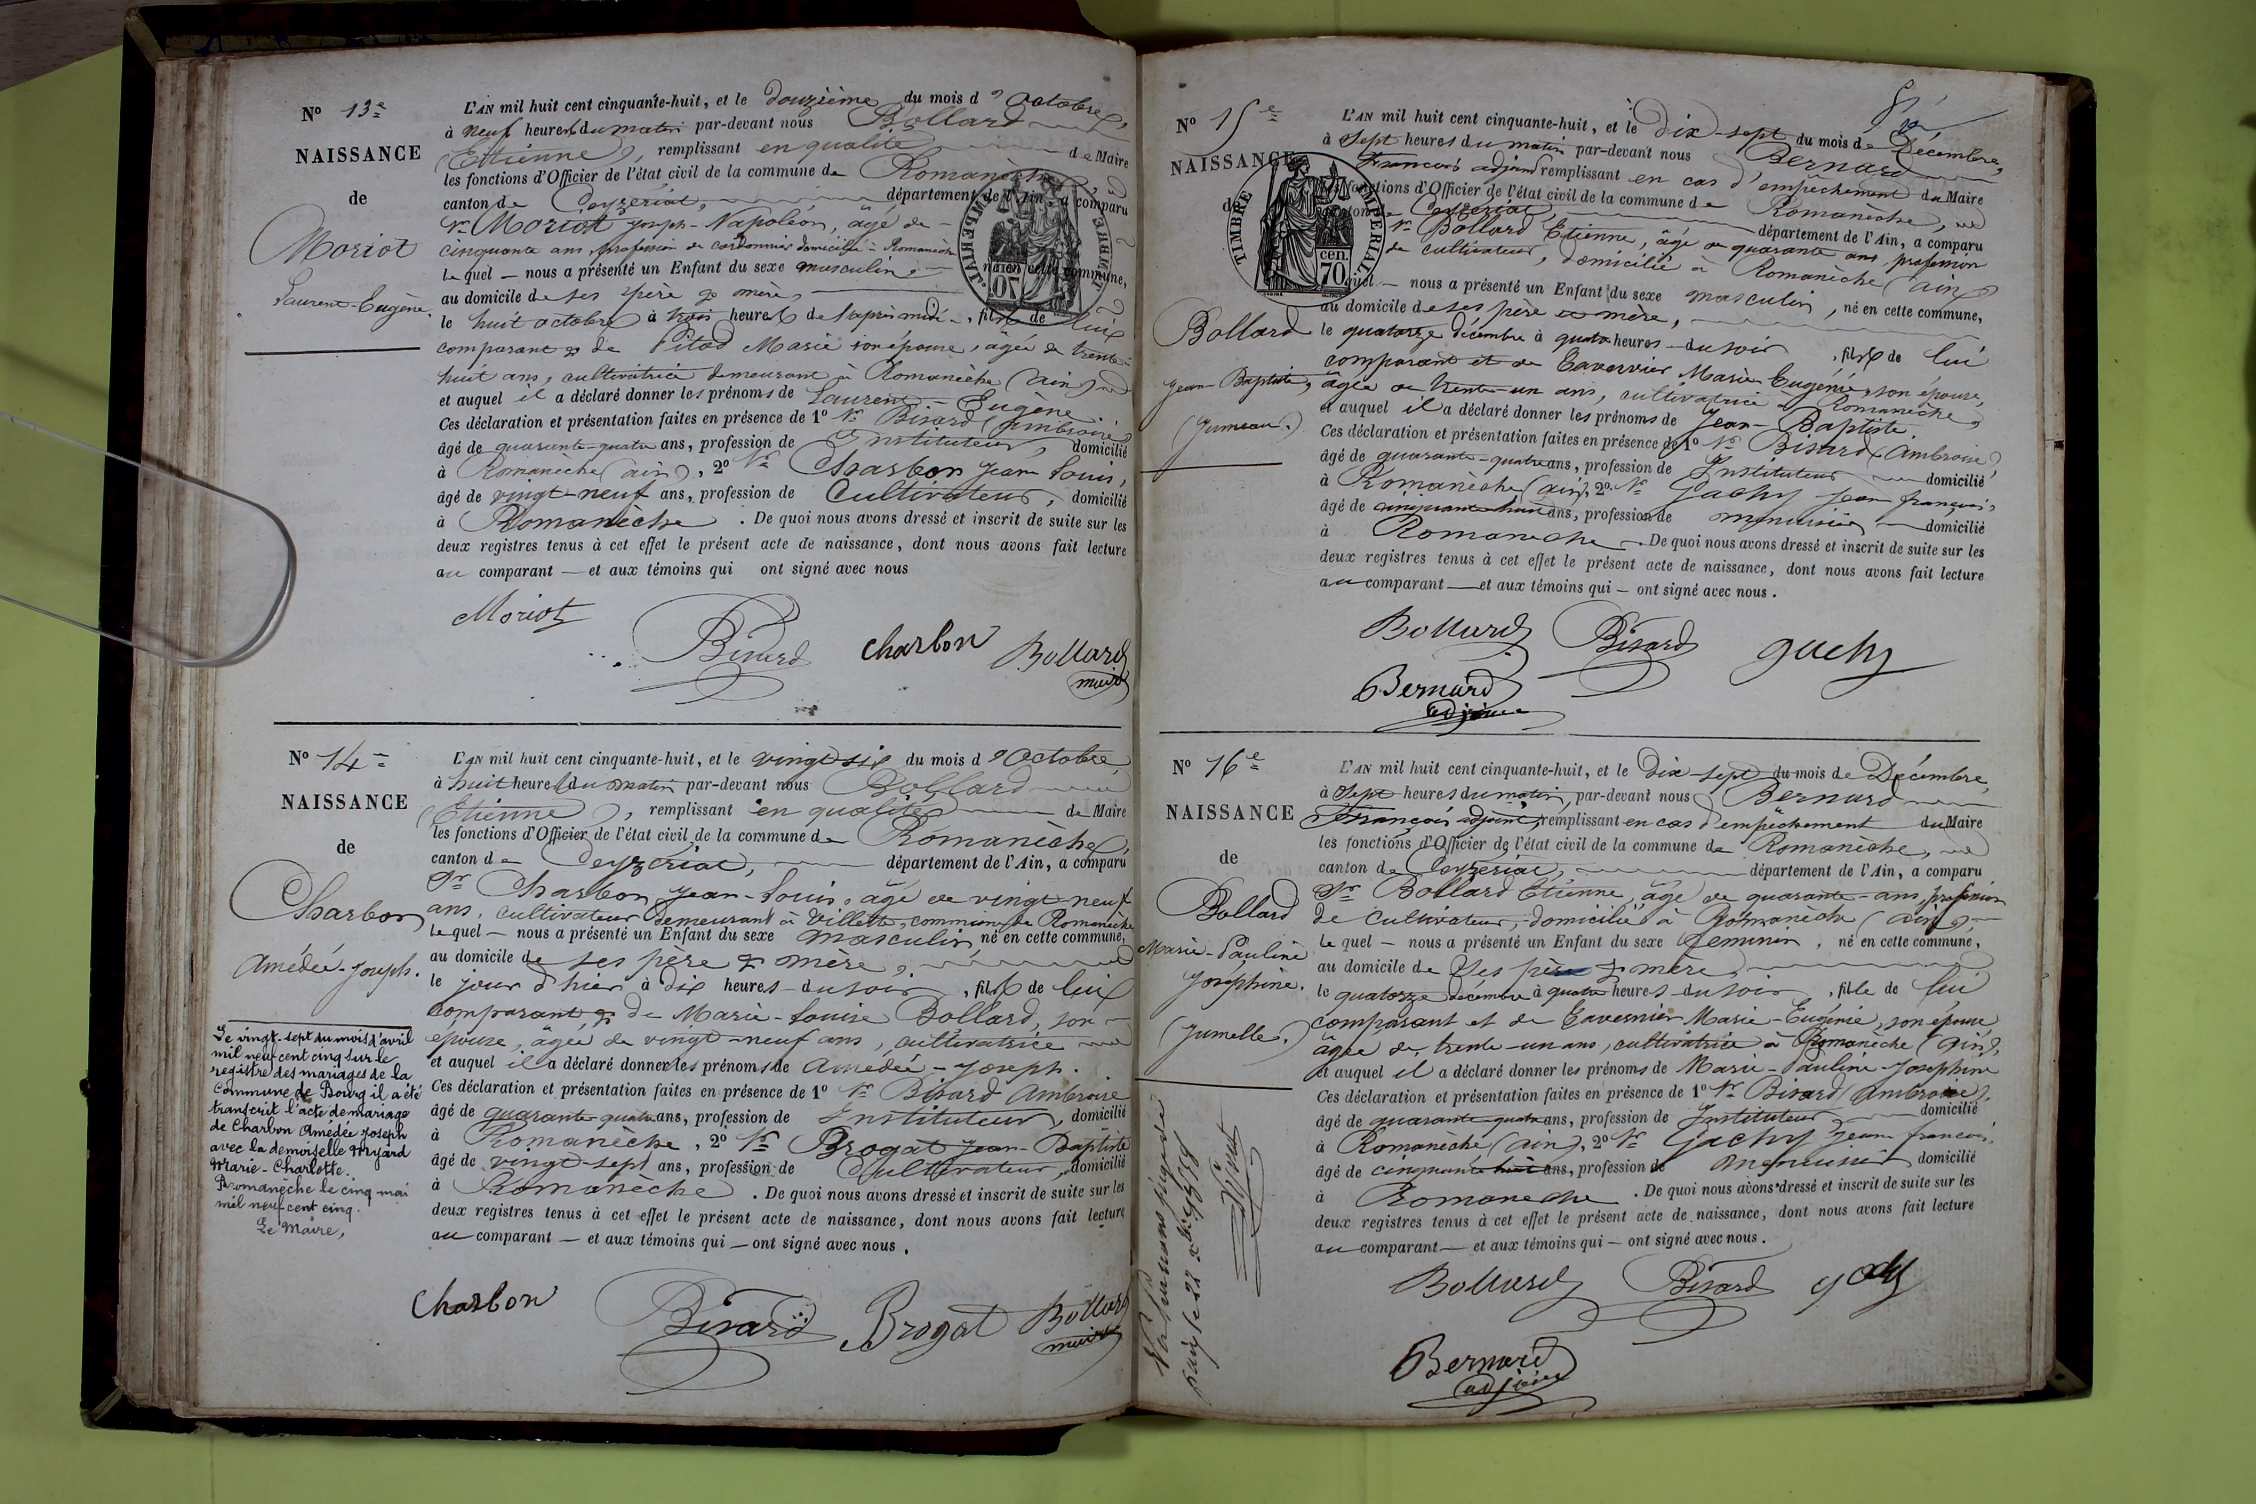 Nº 13e
NAISSANCE
de
Moriot
Laurent-Eugène.
L'AN mil huit cent cinquante-huit, et le douzième du mois d'octobre,
à neuf heures du matin par-devant nous Bollard
(Etienne), remplissant en qualité de Maire
les fonctions d'Officier de l'état civil de la commune de Romanèche,
canton de Ceyzeriat, département de l'Ain, a comparu
Sr Moriot Joseph-Napoléon, âgé de
cinquante ans, profession de cordonnier domicilié à Romanèche
lequel — nous a présenté un Enfant du sexe masculin, né en cette commune,
au domicile de ses père & mère,
le huit octobre à trois heures de l'après midi, fils de lui
comparant & de Pitod Marie son épouse, âgée de trente-
huit ans, cultivatrice demeurant à Romanèche (ain)
et auquel il a déclaré donner les prénoms de Laurent-Eugène
Ces déclaration et présentation faites en présence de 1º Sr Bisard (Ambroise)
âgé de quarante-quatre ans, profession de Instituteur, domicilié
à Romanèche (ain), 2º Sr Charbon Jean Louis,
âgé de vingt-neuf ans, profession de Cultivateur, domicilié
à Romanèche. De quoi nous avons dressé et inscrit de suite sur les
deux registres tenus à cet effet le présent acte de naissance, dont nous avons fait lecture
au comparant — et aux témoins qui ont signé avec nous
Moriot Bisard Charbon Bollard
maire
Nº 14e
NAISSANCE
de
Charbon
Amédée-Joseph.
Le vingt-sept du mois d'avril
mil neuf cent cinq sur le
registre des mariages de la
Commune de Bourg il a été
transcrit l'acte de mariage
de Charbon Amédée Joseph
avec la demoiselle Myard
Marie-Charlotte.
Romanèche le cinq mai
mil neuf cent cinq.
Le Maire,
L'AN mil huit cent cinquante-huit, et le vingt-six du mois d'Octobre,
à huit heures du matin par-devant nous Bollard
(Etienne), remplissant en qualité de Maire
les fonctions d'Officier de l'état civil de la commune de Romanèche,
canton de Ceyzeriat, département de l'Ain, a comparu
Sr Charbon Jean-Louis, âgé de vingt neuf
ans, cultivateur demeurant à Villette, commune de Romanèche
lequel — nous a présenté un Enfant du sexe masculin, né en cette commune,
au domicile de ses père & mère,
le jour d'hier à dix heures du soir, fils de lui
comparant & de Marie-Louise Bollard, son
épouse, âgée de vingt-neuf ans, cultivatrice
et auquel il a déclaré donner les prénoms de Amédée-Joseph.
Ces déclaration et présentation faites en présence de 1º Sr Bisard Ambroise
âgé de quarante-quatre ans, profession de Instituteur, domicilié
à Romanèche, 2º Sr Brogat Jean-Baptiste
âgé de vingt-sept ans, profession de Cultivateur, domicilié
à Romanèche. De quoi nous avons dressé et inscrit de suite sur les
deux registres tenus à cet effet le présent acte de naissance, dont nous avons fait lecture
au comparant — et aux témoins qui — ont signé avec nous.
Charbon Bisard Brogat Bollard
maire
Nº 15e
NAISSANCE
de
Bollard
Jean-Baptiste,
(Jumeau.)
TIMBRE IMPERIAL
cen. 70
L'AN mil huit cent cinquante-huit, et le Dix-sept du mois de Décembre,
à Sept heures du matin par-devant nous Bernard
François adjoint remplissant en cas d'empêchement du Maire
les fonctions d'Officier de l'état civil de la commune de Romanèche,
canton de Ceyzeriat, département de l'Ain, a comparu
Sr Bollard Etienne, âgé de quarante ans, profession
de cultivateur, domicilié à Romanèche (ain)
lequel — nous a présenté un Enfant du sexe masculin, né en cette commune,
au domicile de ses père & mère,
le quatorze décembre à quatre heures du soir, fils de lui
comparant et de Tavernier Marie-Eugénie, son épouse,
âgée de trente-un ans, cultivatrice à Romanèche,
et auquel il a déclaré donner les prénoms de Jean-Baptiste
Ces déclaration et présentation faites en présence de 1º Sr Bisard (Ambroise)
âgé de quarante-quatre ans, profession de Instituteur domicilié
à Romanèche (ain), 2º Sr Gachy Jean françois,
âgé de cinquante huit ans, profession de menuisier domicilié
à Romanèche. De quoi nous avons dressé et inscrit de suite sur les
deux registres tenus à cet effet le présent acte de naissance, dont nous avons fait lecture
au comparant — et aux témoins qui — ont signé avec nous.
Bollard Bisard gachy
Bernard
adjoint
Nº 16e
NAISSANCE
de
Bollard
Marie-Pauline
Joséphine.
(Jumelle.)
L'AN mil huit cent cinquante-huit, et le Dix-sept du mois de Décembre,
à Sept heures du matin, par-devant nous Bernard
François adjoint, remplissant en cas d'empêchement du Maire
les fonctions d'Officier de l'état civil de la commune de Romanèche,
canton de Ceyzeriat, département de l'Ain, a comparu
Sr Bollard Etienne, âgé de quarante-ans, profession
de cultivateur, domicilié à Romanèche (ain),
lequel — nous a présenté un Enfant du sexe féminin, né en cette commune,
au domicile de ses père & mère,
le quatorze décembre à quatre heures du soir, fille de lui
comparant et de Tavernier Marie-Eugénie, son épouse
âgée de trente-un ans, cultivatrice à Romanèche (ain),
et auquel il a déclaré donner les prénoms de Marie-Pauline-Joséphine
Ces déclaration et présentation faites en présence de 1º Sr Bisard (Ambroise),
âgé de quarante-quatre ans, profession de Instituteur domicilié
à Romanèche (ain), 2º Sr Gachy Jean françois,
âgé de cinquante huit ans, profession de menuisier domicilié
à Romanèche. De quoi nous avons dressé et inscrit de suite sur les
deux registres tenus à cet effet le présent acte de naissance, dont nous avons fait lecture
au comparant — et aux témoins qui — ont signé avec nous.
Bollard Bisard gachy
Bernard
adjoint